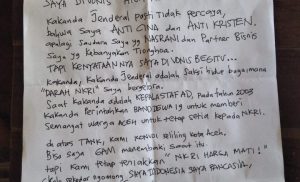 SAYA DIVONIS
Kakanda Jenderal pasti Tidak percaya,
bahwa Saya ANTI CINA dan ANTI KRISTEN.
apalagi Saudara Saya yg NASRANI dan Partner Bisnis
Saya yg Kebanyakan Tionghoa.
TAPI KENYATAANNYA SAYA DIVONIS BEGITU...
kakanda, kakanda Jenderal adalah Saksi hidup bagaimana
"DARAH NKRI" Saya bergelora.
Saat Kakanda adalah KEPALA STAF AD, Pada Tahun 2003
Kakanda Perintahkan BAND DEWA 19 untuk memberi
Semangat warga ACEH untuk tetap setia kepada NKRI.
di atas TANK, Kami konvoi keliling Kota Aceh,
Bisa Saja GAM menembaki Saat itu.
tapi Kami tetap teriakkan "NKRI HARGA MATI!"
Kalo sekedar ngomong SAYA INDONESIA SAYA PANCASILA,